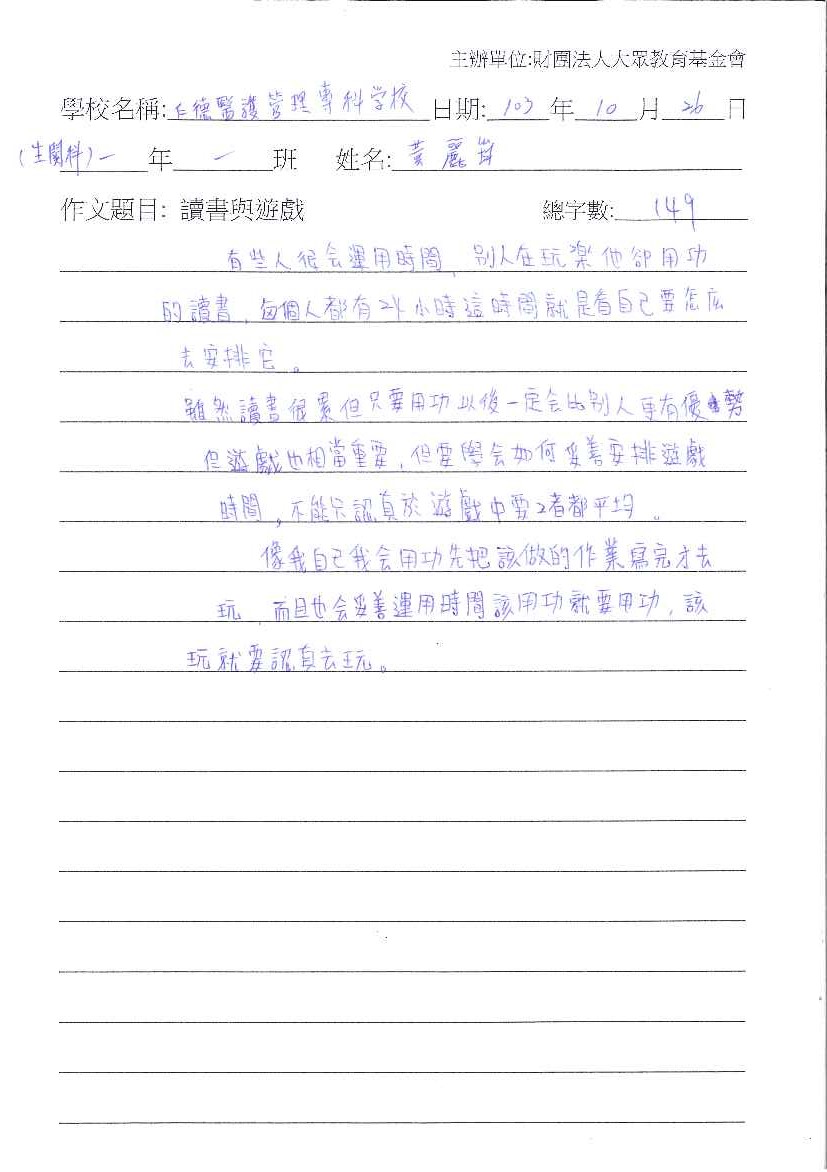 主辦單位:財團法人大眾教育基金會
學校名稱:仁德醫護管理專科学校 日期: 103 年 10 月 26 日
(生關科)一 年 一 班 姓名: 黃麗
作文題目: 讀書與遊戲 總字數: 149
有些人很会運用時間,別人在玩楽他卻用功
的讀書,每個人都有24小時這時間就是看自己要怎広
去安排它。
雖然讀書很累但只要用功以後一定会比別人更有優勢
但遊戲也相當重要,但要學会如何妥善安排遊戲
時間,不能只認真於遊戲中要2者都平均。
像我自己我会用功先把該做的作業寫完才去
玩,而且也会妥善運用時間該用功就要用功,該
玩就要認真去玩。